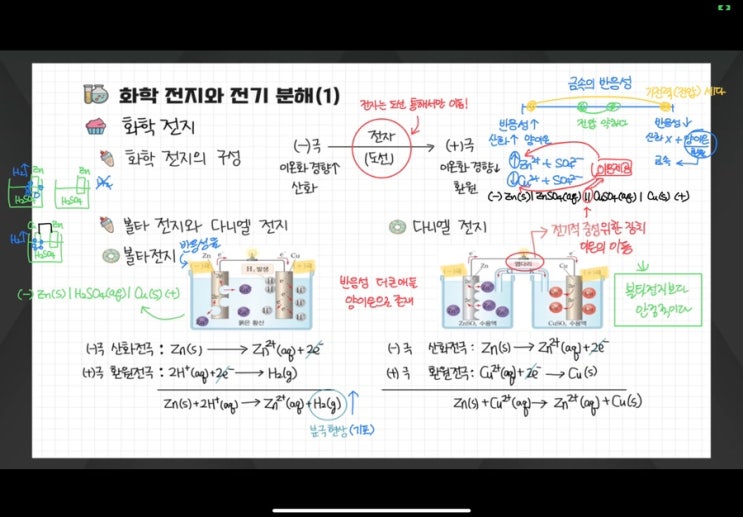 화학 전지와 전기 분해(1)
전자는 도선 통해서만 이동!
금속의 반응성
기전력(전압) 세다
반응성↑
산화↑ 양이온
전압 약하다
반응성↓
산화 X +
환원
금속
화학 전지
화학 전지의 구성
(-)극
이온화 경향↑
산화
전자
(도선)
(+)극
이온화 경향↓
환원
Zn²⁺ + SO₄²⁻
Cu²⁺ + SO₄²⁻
(-) Zn(s) | ZnSO₄(aq) || CuSO₄(aq) | Cu(s) (+)
H₂↑ Zn
H₂SO₄
Zn
H₂SO₄
Cu Zn
H₂↑
H₂SO₄
볼타 전지와 다니엘 전지
볼타전지
(-) Zn(s) | H₂SO₄(aq) | Cu(s) (+)
Zn e⁻ e⁻ Cu
(-)극 H₂ 발생 (+)극
묽은 황산
반응성 더 큰애들
양이온으로 존재
다니엘 전지
전기적 중성위한 장치
이온의 이동
Zn e⁻ e⁻ Cu
(-)극 염다리 (+)극
ZnSO₄ 수용액 CuSO₄ 수용액
볼타전지보다
안정적이다
(-)극 산화전극 : Zn(s) → Zn²⁺(aq) + 2e⁻
(+)극 환원전극 : 2H⁺(aq) + 2e⁻ → H₂(g)
Zn(s) + 2H⁺(aq) → Zn²⁺(aq) + H₂(g) ↑
분극현상(기포)
(-)극 산화전극 : Zn(s) → Zn²⁺(aq) + 2e⁻
(+)극 환원전극 : Cu²⁺(aq) + 2e⁻ → Cu(s)
Zn(s) + Cu²⁺(aq) → Zn²⁺(aq) + Cu(s)